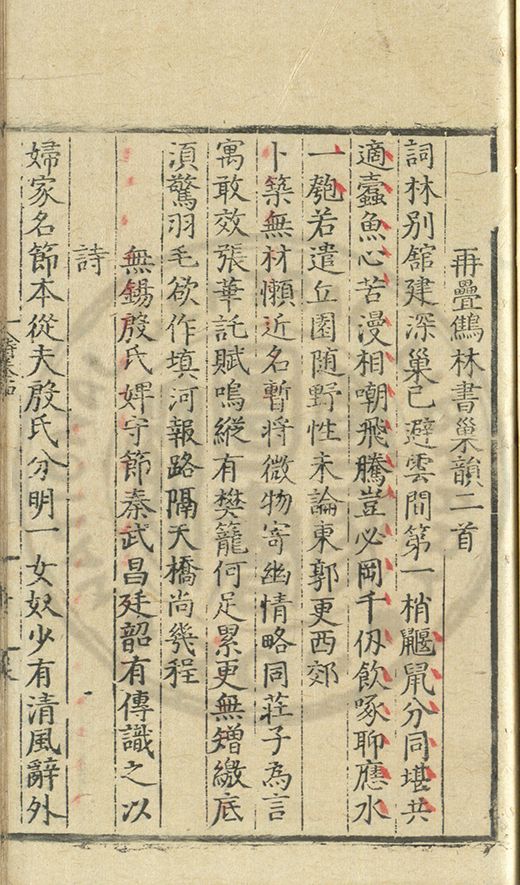 再疊鷦林書巢韻二首
詞林別舘建深巢已避雲間第一梢鼴鼠分同堪共
適蠹魚心苦漫相嘲飛騰豈必岡千仭飲啄聊應水
一匏若遣丘園随野性未論東郭更西郊
卜築無材懶近名暫将微物寄幽情略同莊子為言
寓敢效張華託賦鳴縱有樊籠何足累更無矰繳底
湏驚羽毛欲作填河報路隔天橋尚幾程
無錫殷氏婢守節秦武昌廷韶有傳識之以
詩
婦家名節本從夫殷氏分明一女奴少有清風辭外